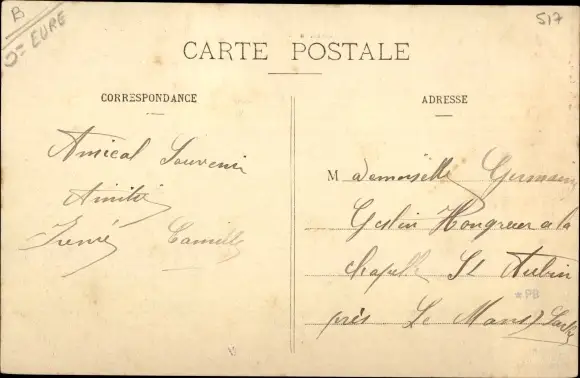 B
D= EURE
517
CARTE POSTALE
CORRESPONDANCE
Amical Souvenir
Amitié
Irené Camille
ADRESSE
Mademoiselle Germaine
Geslin Hongreur a la
chapelle St Aubin
*PB
près Le Mans Sarthe